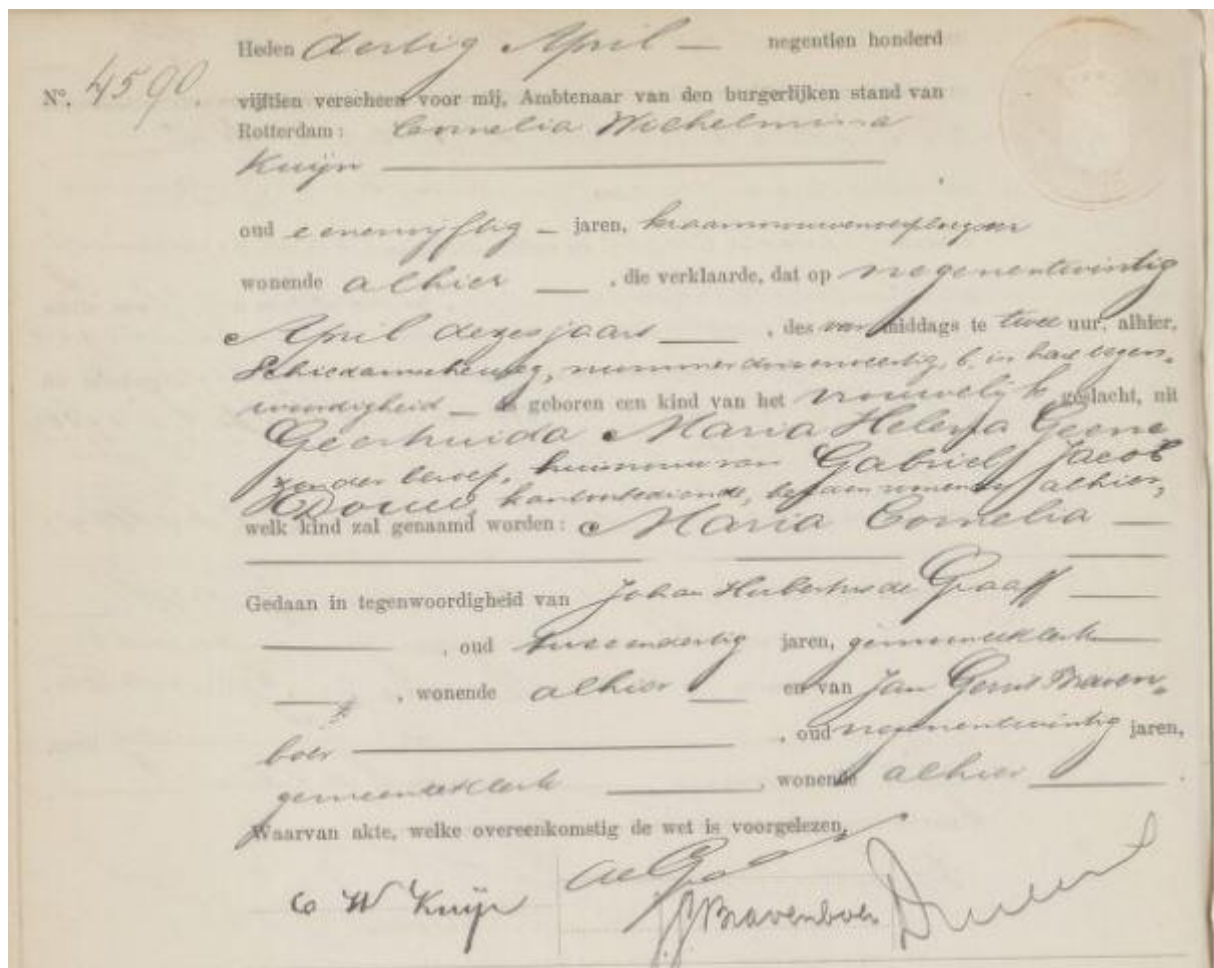 Heden dertig April — negentien honderd
No. 4590. vijftien verscheen voor mij, Ambtenaar van den burgerlijken stand van
Rotterdam: Cornelia Wilhelmina
Kuijn
oud eenenvijftig — jaren, kraamvrouwenverpleegster
wonende alhier — , die verklaarde, dat op negenentwintig
April dezes jaars — , des voormiddags te twee uur, alhier,
Schiedamscheweg, nummer drieenveertig, b, in hare tegen-
woordigheid — is geboren een kind van het vrouwelijk geslacht, uit
Geertruida Maria Helena Geene
zonder beroep, huisvrouw van Gabriel Jacob
kantoorbediende, beiden wonende alhier,
welk kind zal genaamd worden: Maria Cornelia —
Gedaan in tegenwoordigheid van Johan Hubertus de Graaff —
— , oud tweeendertig jaren, gemeenteklerk —
— , wonende alhier — en van Jan Gerrit Braven-
boer — , oud negenentwintig jaren,
gemeenteklerk — , wonende alhier — .
Waarvan akte, welke overeenkomstig de wet is voorgelezen.
C W Kuijn de Graaff
J G Bravenboer